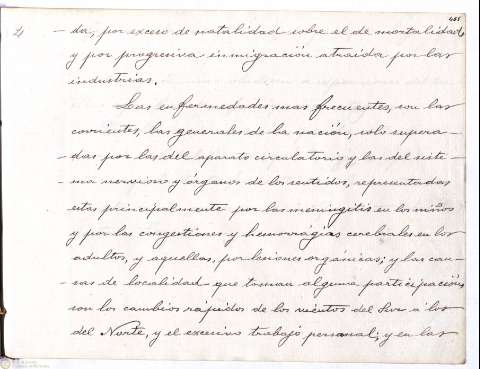 455
- da, por exceso de natalidad sobre el de mortalidad,
y por progresiva inmigración atraida por las
industrias.
Las enfermedades mas frecuentes, son las
corrientes, las generales de la nación, solo supera-
- das por las del aparato circulatorio y las del siste-
- ma nervioso y órganos de los sentidos, representadas
estas principalmente por las meningitis en los niños
y por las congestiones y hemorrágias cerebrales en los
adultos, y aquellas, por lesiones orgánicas; y las cau-
- sas de localidad que toman alguna participación,
son los cambios rápidos de los vientos del Sur á los
del Norte, y el excesivo trabajo personal; y en las